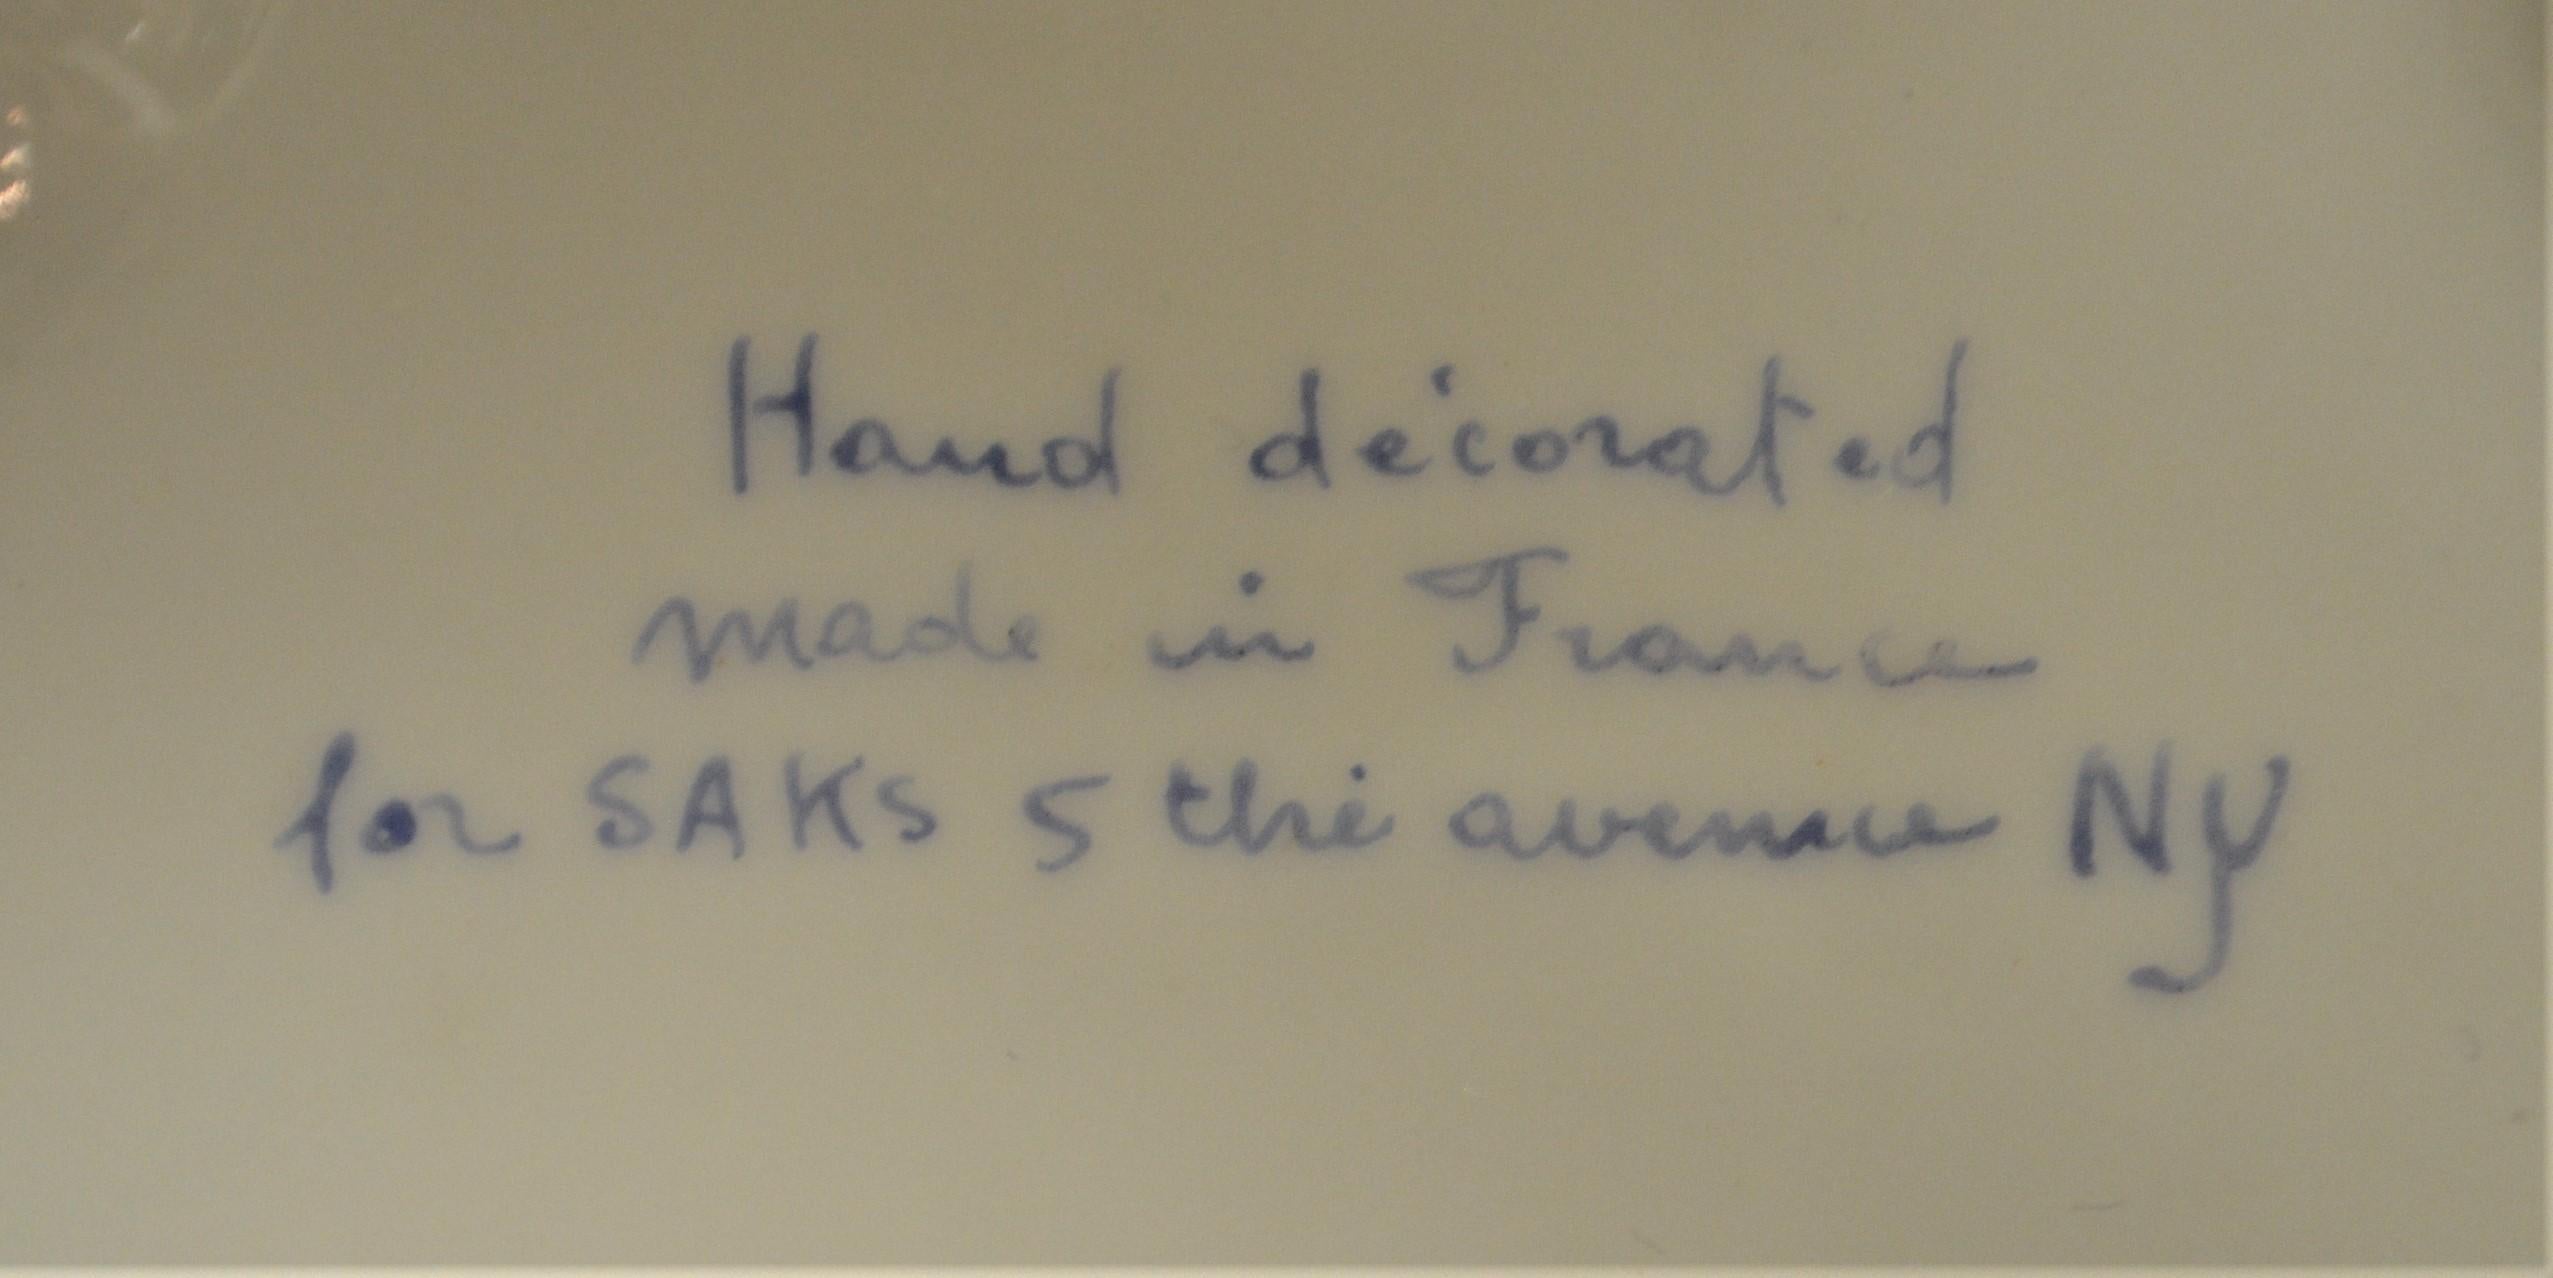 Hand décorated
made in France
for SAKS 5 thé avenue NY